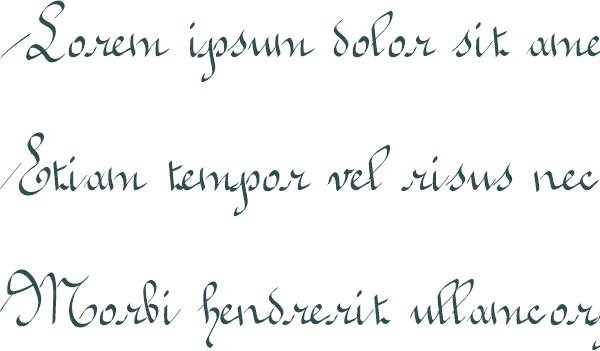 Lorem ipsum dolor sit ame
Etiam tempor vel risus nec
Morbi hendrerit ullamcorp